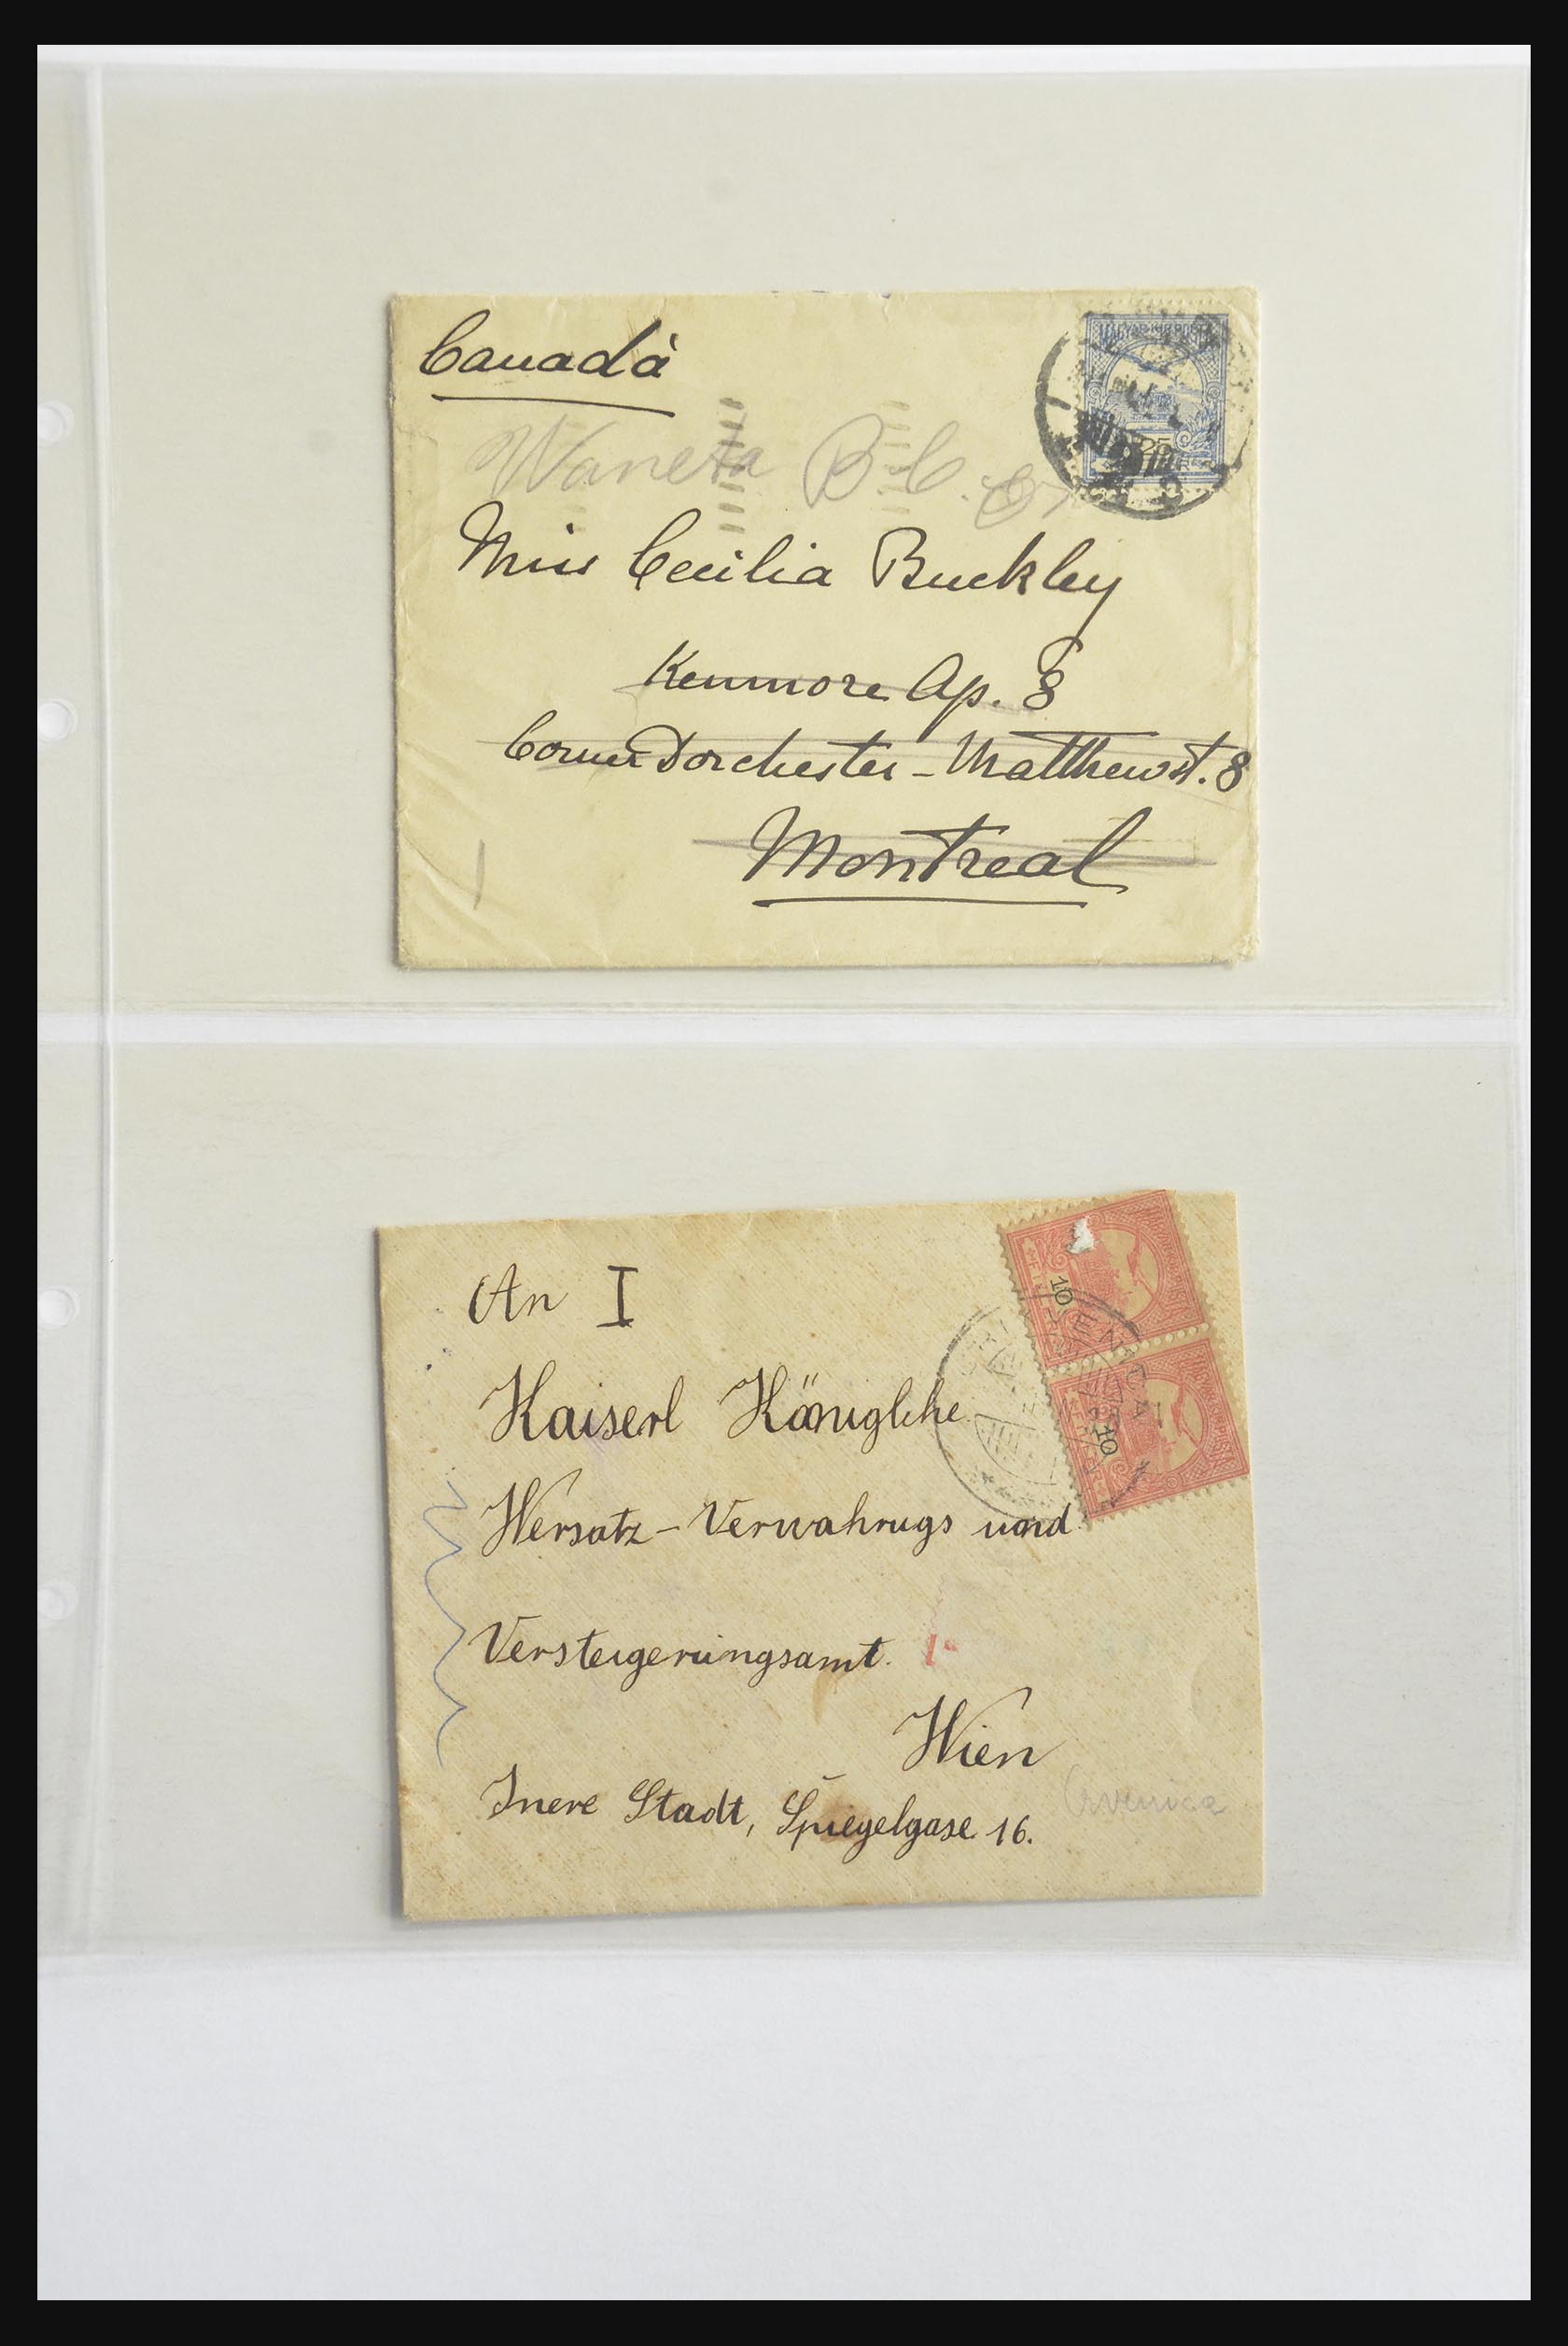 Canadà
MAGYAR KIR. POSTA
25
Waneta B.C.
Miss Cecilia Buckley
Kenmore Ap. 8
Corner Dorchester - Matthewst. 8
Montreal
10
10
An I
Kaiserl Königlche
Wersatz - Verwahrugs und
Versteigerungsamt.
Wien
Inere Stadt, Spiegelgase 16.
Crvenica